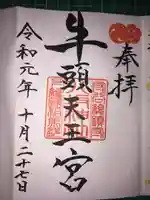 奉拝
牛頭天王宮
令和元年十月二十七日